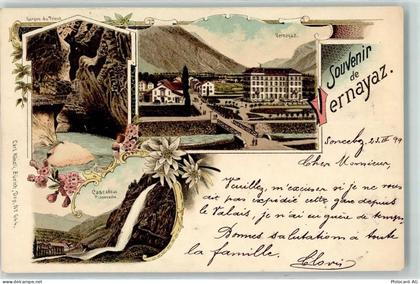 Gorges du Trient
Vernayaz.
Souvenir
de
Vernayaz.
Cascade de
Pissevache
Carl Künzli, Zürich, Dép.
Sonceboz, 22 IX 99
Cher Monsieur,
Veuillez m'excuser si je ne vous
ait pas expédié cette carte depuis
le Valais, je n'ai eu guère de temps.
Bonnes salutations à toute
la famille.
Clovis
oldthing